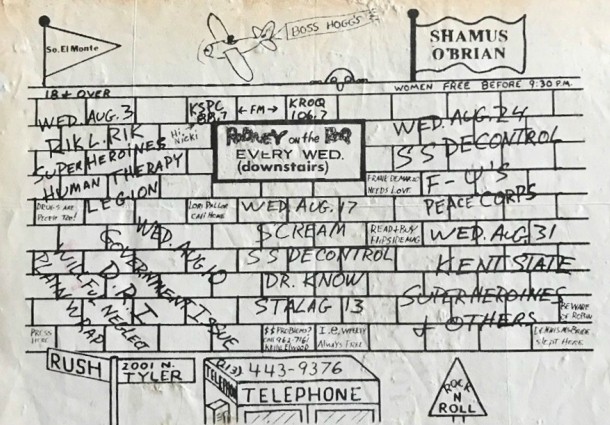 So. El Monte
BOSS HOGGS
SHAMUS
O'BRIAN
18 & OVER
WOMEN FREE BEFORE 9:30 P.M.
KSPC
88.7
← FM →
KROQ
106.7
Hi Nicki
RODNEY on the ROQ
EVERY WED.
(downstairs)
WED. AUG. 3
RIK L. RIK
SUPERHEROINES
HUMAN THERAPY
LEGION
DRUGS ARE
PEOPLE TOO!
WED. AUG. 10
GOVERNMENT ISSUE
D.R.I.
WILLFUL NEGLECT
PLAIN WRAP
CALL HOME
WED. AUG. 17
$CREAM
SS DECONTROL
DR. KNOW
STALAG 13
NEEDS LOVE
READ & BUY
FLIPSIDE MAG
WED. AUG. 24
SS DECONTROL
F-U'S
PEACE CORPS
WED. AUG. 31
KENT STATE
SUPERHEROINES
& OTHERS
BEWARE
OF ROBIN
PRESS
HERE
$$ PROBLEMS?
I.e. WEEKLY
Always Free
Slept Here
RUSH
2001 N.
TYLER
(213) 443-9376
TELEPHONE
TELEPHONE
ROCK
N
ROLL